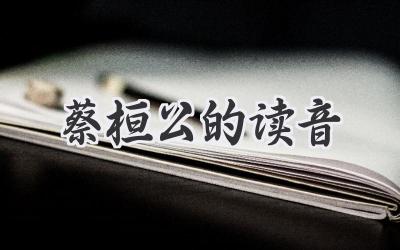 蔡桓公的读音